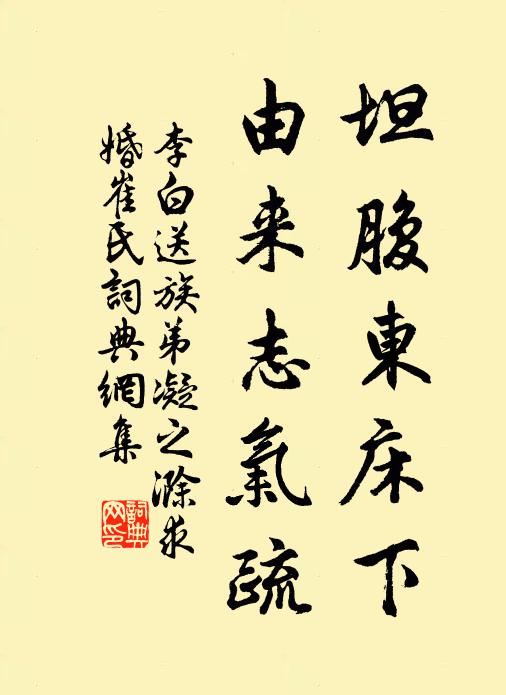 坦腹東床下
由来志氣疏
李白送族弟凝之滁求
婚崔氏詞典網集
詞典
网印